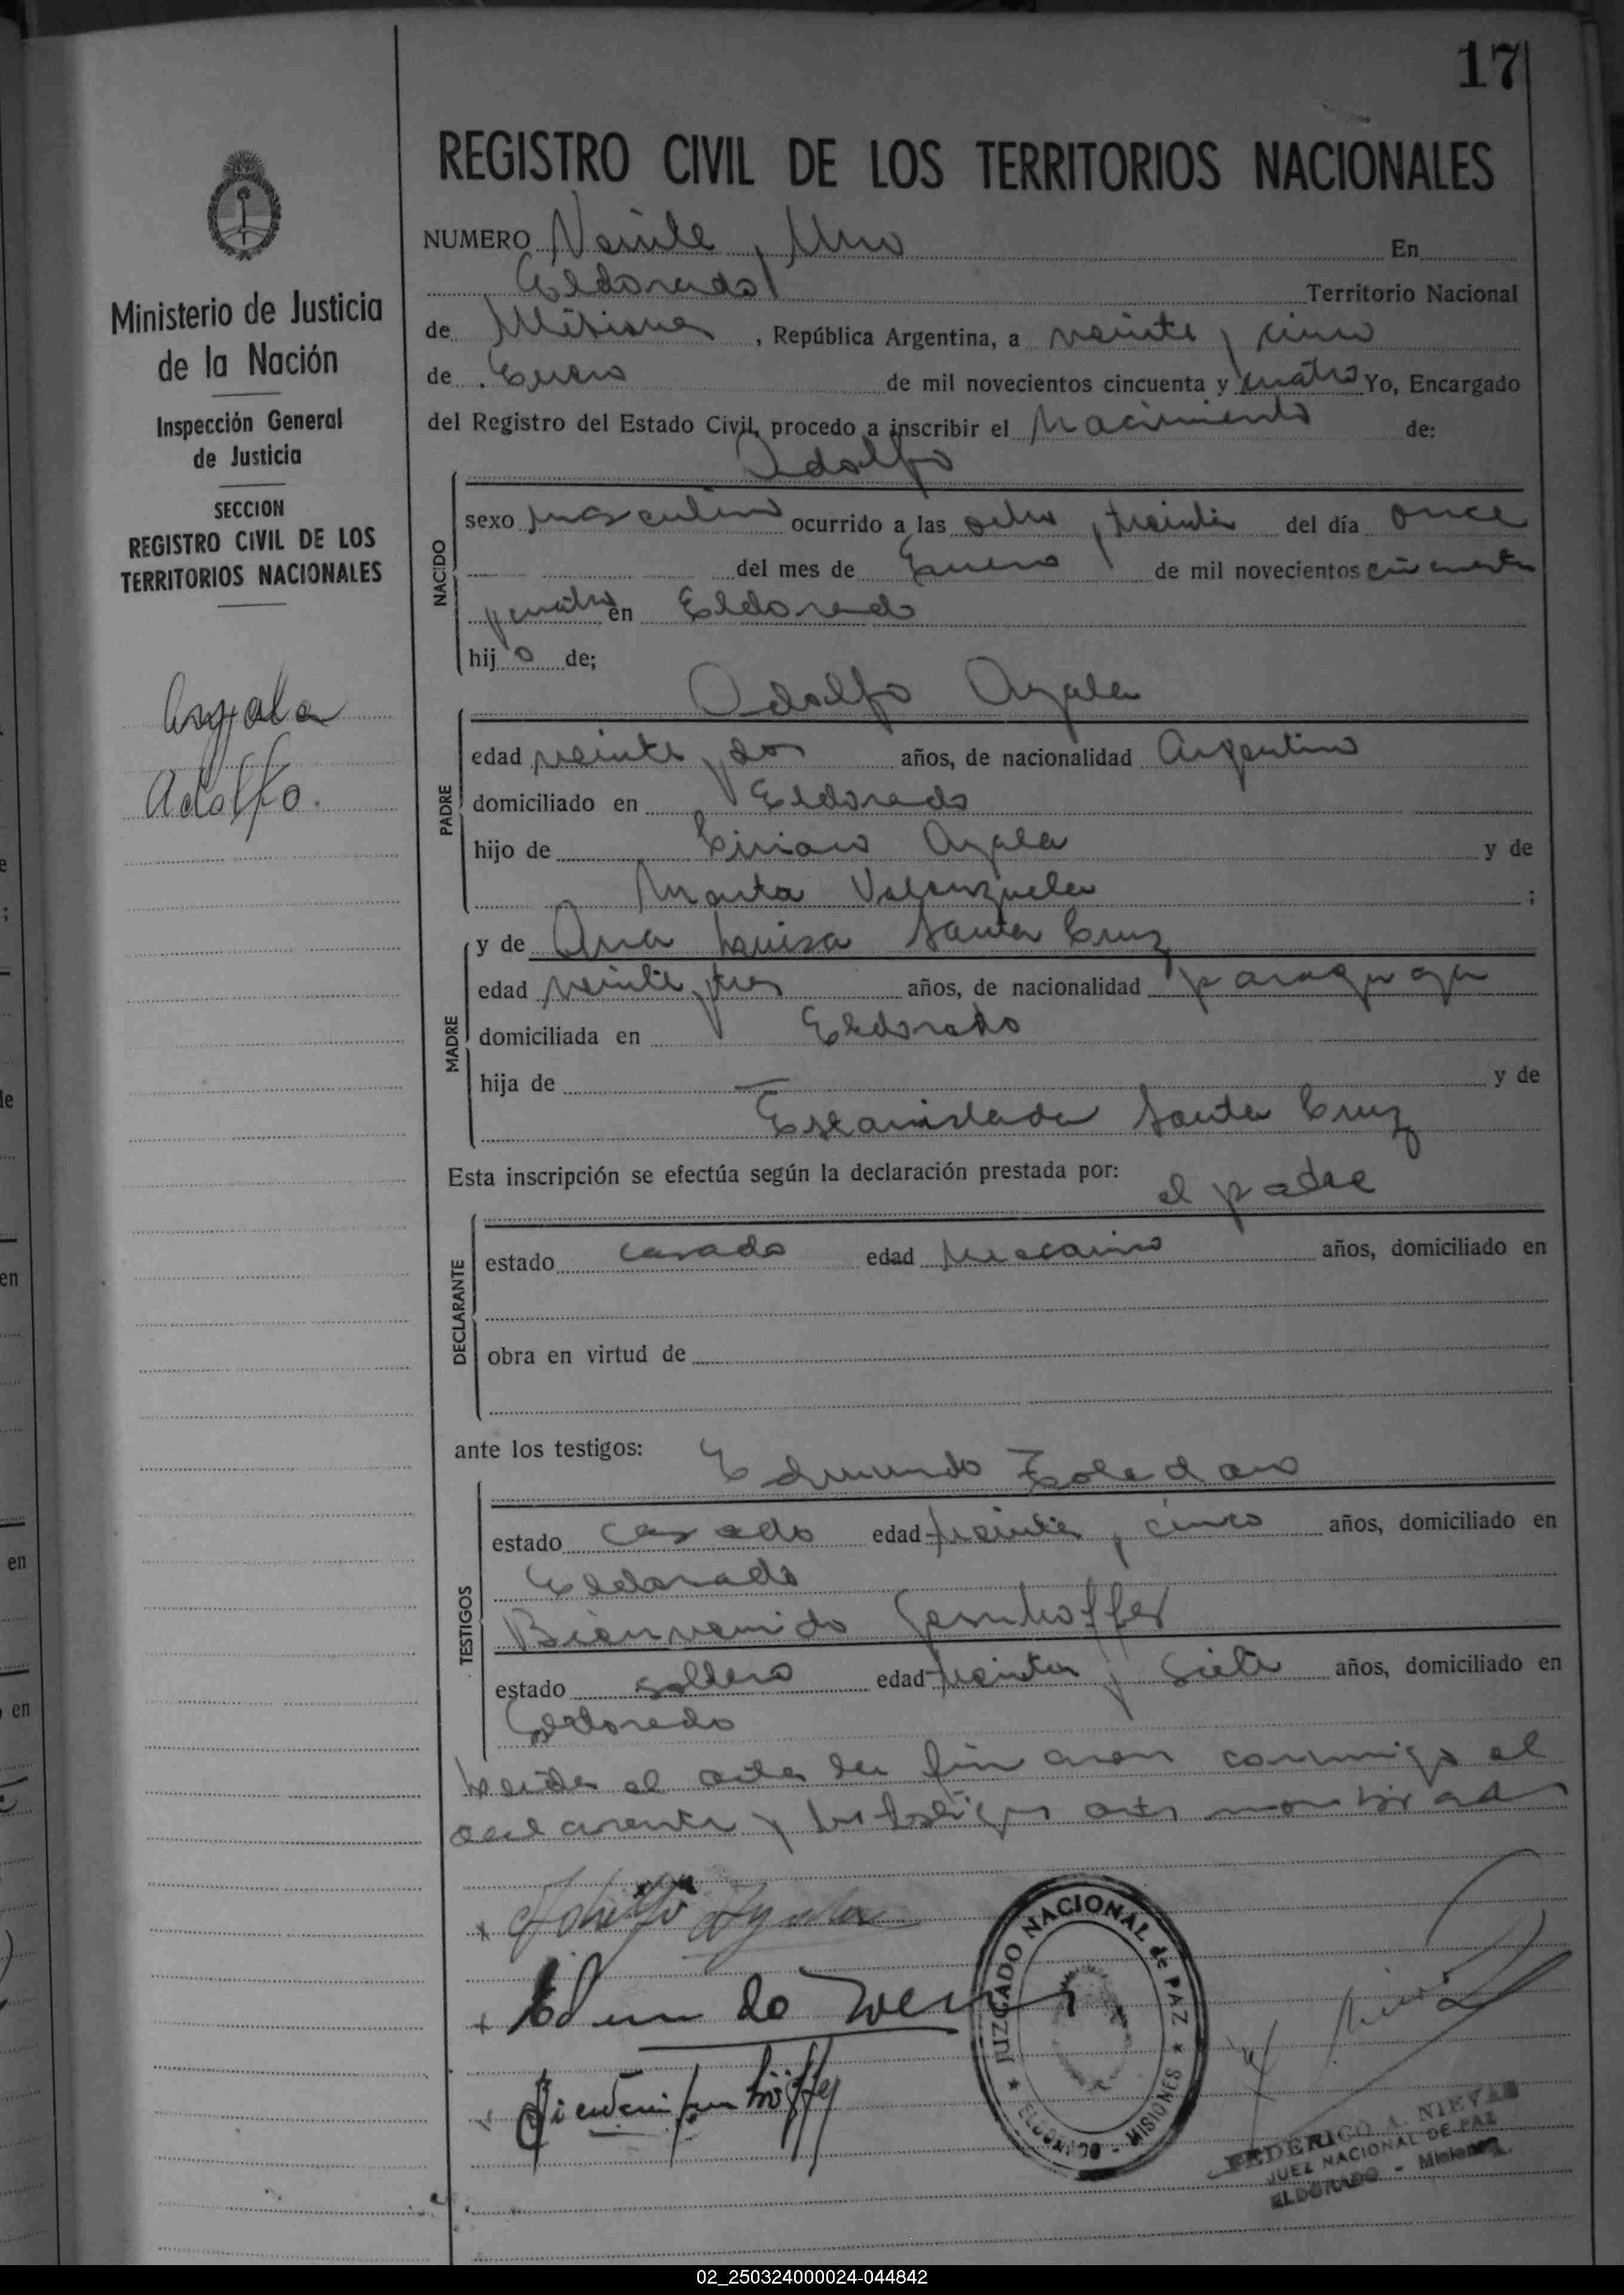 17
REGISTRO CIVIL DE LOS TERRITORIOS NACIONALES
Ministerio de Justicia
de la Nación
Inspección General
de Justicia
SECCION
REGISTRO CIVIL DE LOS
TERRITORIOS NACIONALES
Ayala
Adolfo.
NUMERO Veinte y Uno En
Eldorado Territorio Nacional
de Misiones, República Argentina, a veinte y cinco
de Enero de mil novecientos cincuenta y cuatro Yo, Encargado
del Registro del Estado Civil, procedo a inscribir el Nacimiento de:
Adolfo
NACIDO
sexo masculino ocurrido a las ocho y treinta del día once
del mes de Enero de mil novecientos cincuenta
y cuatro en Eldorado
hijo de;
PADRE
Adolfo Ayala
edad veinte y dos años, de nacionalidad Argentino
domiciliado en Eldorado
hijo de Ciriaco Ayala y de
Marta Valenzuela ;
MADRE
y de Ana Luisa Santa Cruz
edad veinte y tres años, de nacionalidad paraguaya
domiciliada en Eldorado
hija de — y de
Estanislada Santa Cruz
Esta inscripción se efectúa según la declaración prestada por:
el padre
DECLARANTE
estado casado edad Mecanico años, domiciliado en
obra en virtud de
ante los testigos:
TESTIGOS
Edmundo Toledano
estado casado edad treinta y cinco años, domiciliado en
Eldorado
Bienvenido
estado soltero edad treinta y siete años, domiciliado en
Eldorado
Leida el acta la firmaron conmigo el
declarante y los testigos arts nombrados
Adolfo Ayala
Edmundo
JUZGADO NACIONAL de PAZ
ELDORADO - MISIONES
FEDERICO A. NIEVAS
JUEZ NACIONAL DE PAZ
ELDORADO - Misiones
02_250324000024-044842